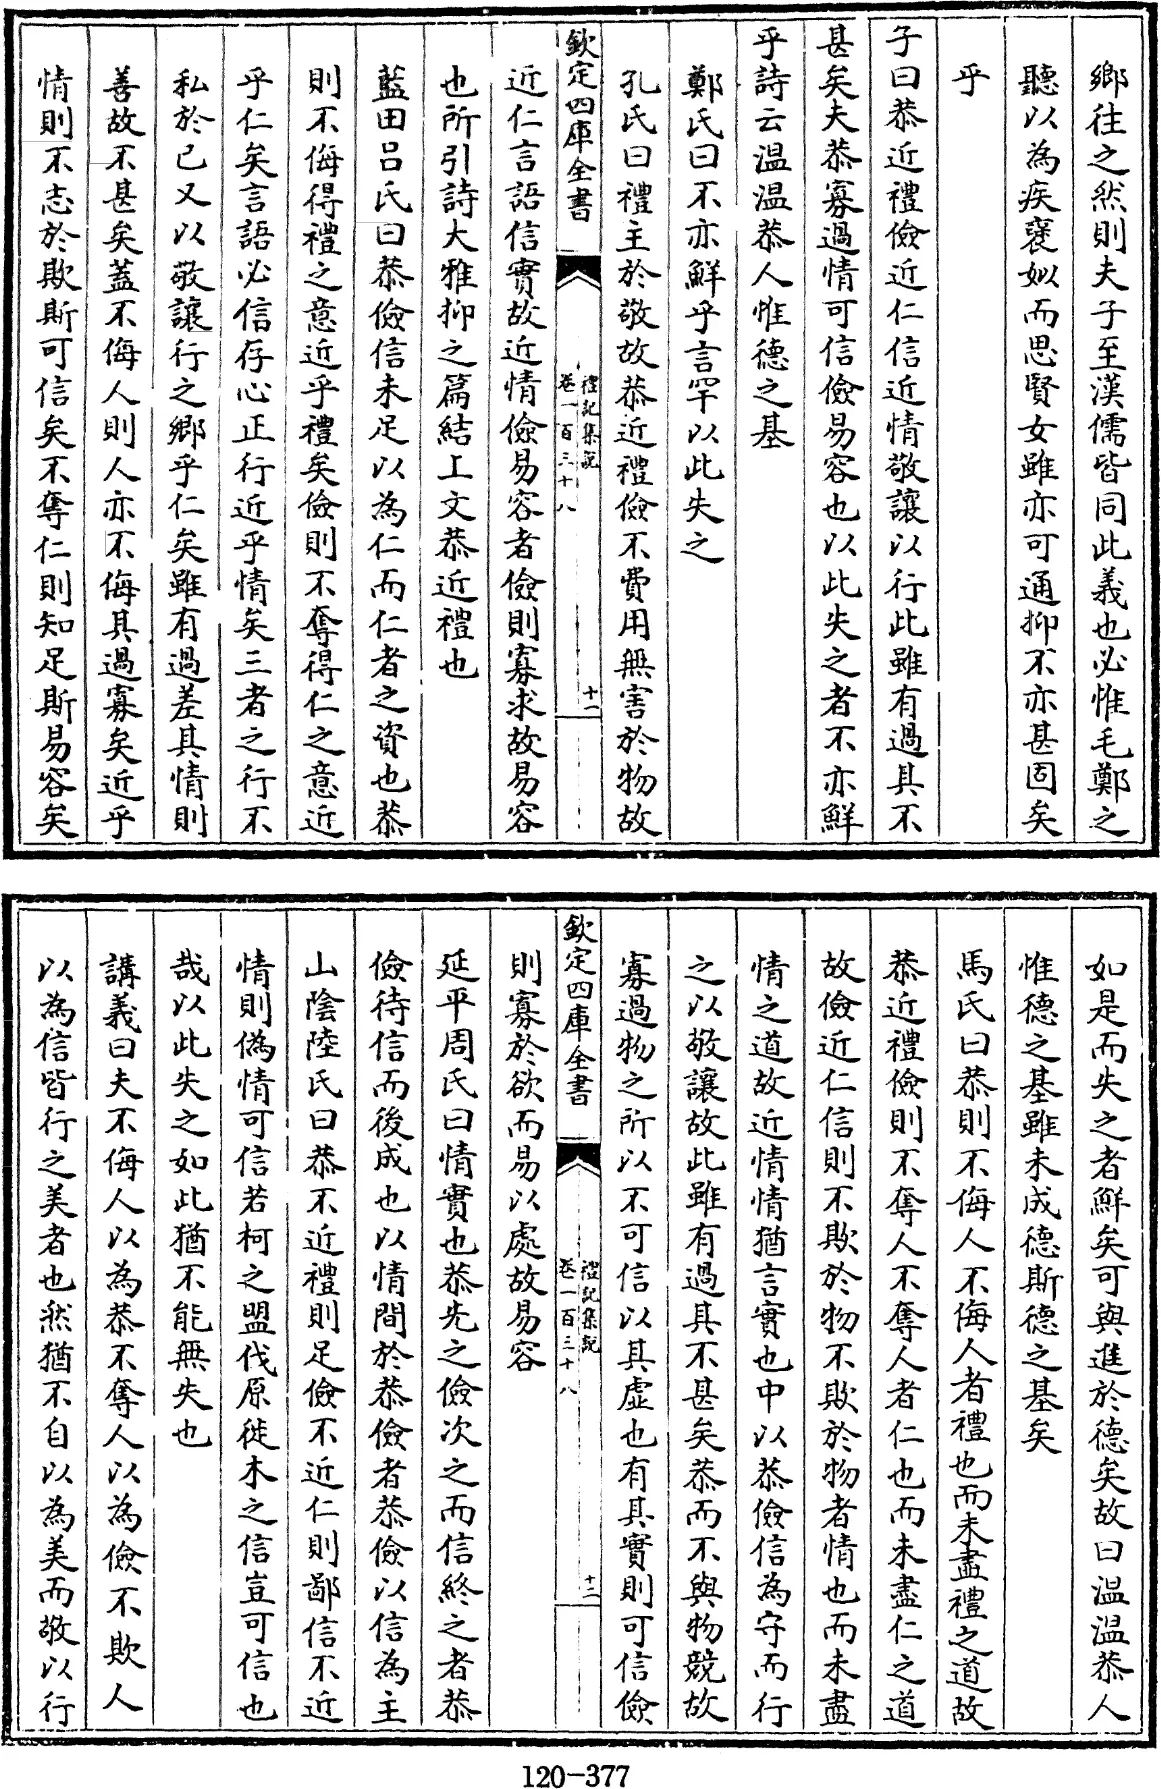 鄉往之然則夫子至漢儒皆同此義也必惟毛鄭之
聽以為疾襃姒而思賢女雖亦可通抑不亦甚固矣
乎
子曰恭近禮儉近仁信近情敬讓以行此雖有過其不
甚矣夫恭寡過情可信儉易容也以此失之者不亦鮮
乎詩云溫溫恭人惟德之基
鄭氏曰不亦鮮乎言罕以此失之
孔氏曰禮主於敬故恭近禮儉不費用無害於物故
欽定四庫全書
禮記集說
卷一百三十八
十一
近仁言語信實故近情儉易容者儉則寡求故易容
也所引詩大雅抑之篇結上文恭近禮也
藍田呂氏曰恭儉信未足以為仁而仁者之資也恭
則不侮得禮之意近乎禮矣儉則不奪得仁之意近
乎仁矣言語必信存心正行近乎情矣三者之行不
私於己又以敬讓行之鄉乎仁矣雖有過差其情則
善故不甚矣蓋不侮人則人亦不侮其過寡矣近乎
情則不志於欺斯可信矣不奪仁則知足斯易容矣
如是而失之者鮮矣可與進於德矣故曰溫溫恭人
惟德之基雖未成德斯德之基矣
馬氏曰恭則不侮人不侮人者禮也而未盡禮之道故
恭近禮儉則不奪人不奪人者仁也而未盡仁之道
故儉近仁信則不欺於物不欺於物者情也而未盡
情之道故近情情猶言實也中以恭儉信為守而行
之以敬讓故此雖有過其不甚矣恭而不與物競故
寡過物之所以不可信以其虛也有其實則可信儉
欽定四庫全書
禮記集說
卷一百三十八
十二
則寡於欲而易以處故易容
延平周氏曰情實也恭先之儉次之而信終之者恭
儉待信而後成也以情間於恭儉者恭儉以信為主
山陰陸氏曰恭不近禮則足儉不近仁則鄙信不近
情則偽情可信若柯之盟伐原徙木之信豈可信也
哉以此失之如此猶不能無失也
講義曰夫不侮人以為恭不奪人以為儉不欺人
以為信皆行之美者也然猶不自以為美而敬以行
120-377